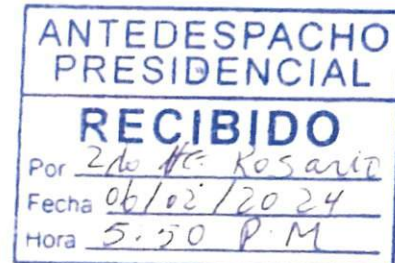 ANTEDESPACHO
PRESIDENCIAL
RECIBIDO
Por 2do Rosario
Fecha 06/02/2024
Hora 5:50 P.M